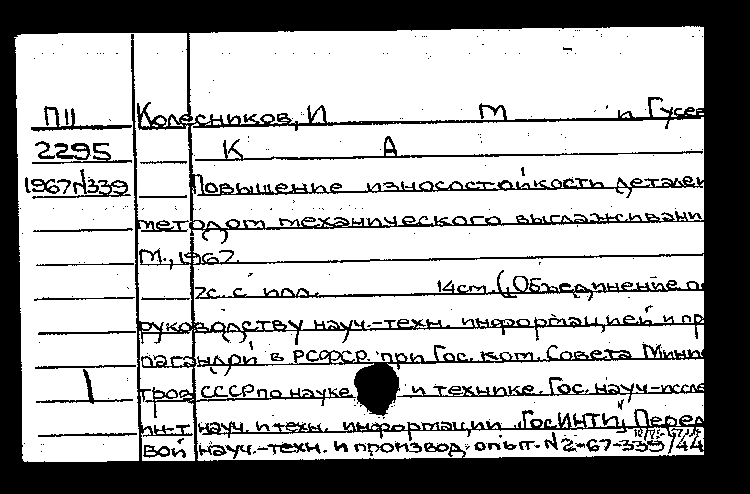 П11 Колесников, И М и Гусев
2295 К А
1967N339 Повышение износостойкости деталей
методом механического выглаживани
М., 1967.
7с. с илл. 14см. („Объединение по
руководству науч.-техн. информацией и про
пагандой в РСФСР при Гос. ком. Совета Минис
тров СССР по науке и технике. Гос. науч-иссле
ин-т науч. и техн. информации „ГосИНТИ", Перед
вой науч.-техн. и производ. опыт. N2-67-339/44